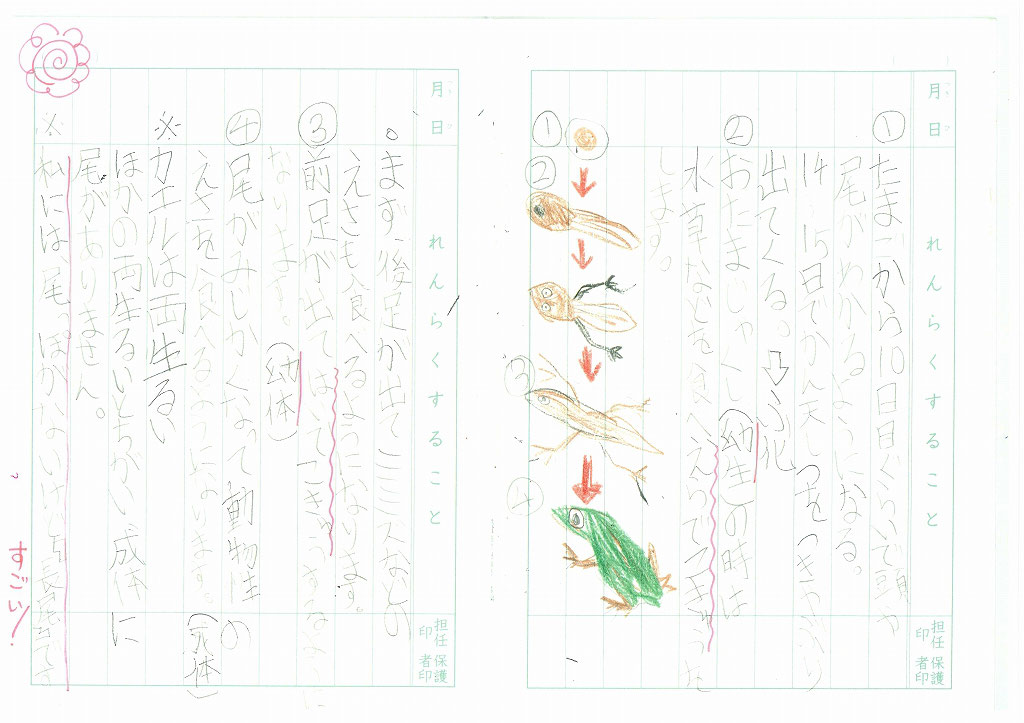 月 日
れんらくすること
担任印
保護者印
① たまごから10日目ぐらいで頭や
尾がわかるようになる。
14 15日でかん天しつをつきやぶり
出てくる。⇨ふ化
② おたまじゃくし(幼生)の時は
水草などを食べえらでこきゅうを
します。
①
②
③
4
月 日
れんらくすること
担任印
保護者印
。まず、後足が出てミミズなどの
えさも食べるようになります。
③ 前足が出てはいでこきゅうするように
なります。(幼体)
④ 尾がみじかくなって動物性の
えさを食べるようになります。(成体)
※ カエルは両生るい
ほかの両生るいとちがい成体に
尾がありません。
※ 私には、尾っぽがないけど
すごい!